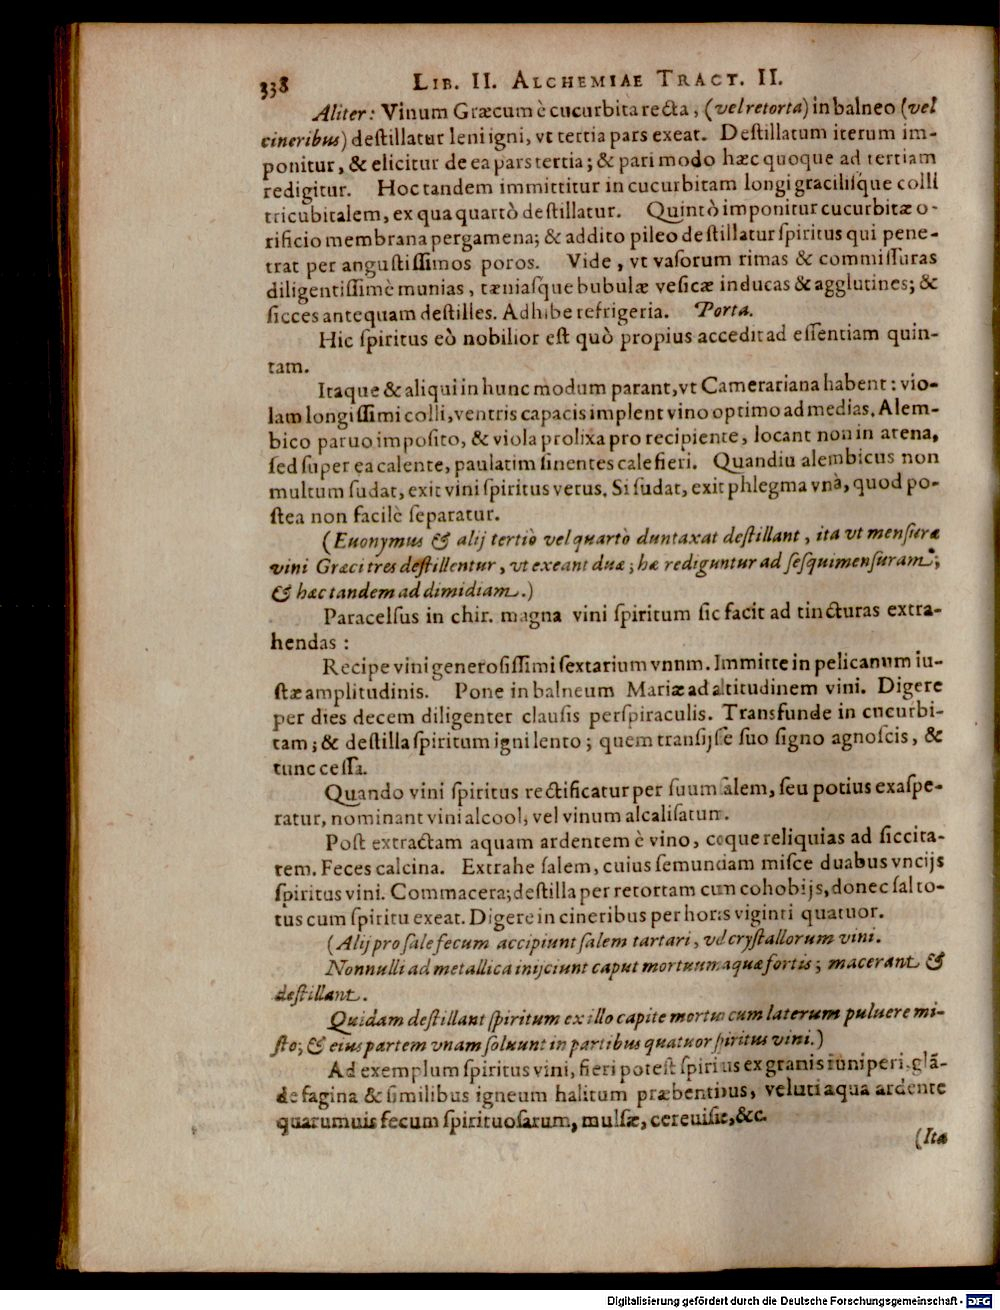 338 LIB. II. ALCHEMIAE TRACT. II.
Aliter: Vinum Græcum è cucurbita recta, (vel retorta) in balneo (vel
cineribus) deſtillatur leni igni, vt tertia pars exeat. Deſtillatum iterum im-
ponitur, & elicitur de ea pars tertia; & pari modo hæc quoque ad tertiam
redigitur. Hoc tandem immittitur in cucurbitam longi graciliſque colli
tricubitalem, ex qua quartò deſtillatur. Quintò imponitur cucurbitæ o-
rificio membrana pergamena; & addito pileo deſtillatur ſpiritus qui pene-
trat per anguſtiſſimos poros. Vide, vt vaſorum rimas & commiſſuras
diligentiſſimè munias, tæniaſque bubulæ veſicæ inducas & agglutines; &
ſicces antequam deſtilles. Adhibe refrigeria. Porta.
Hic ſpiritus eò nobilior eſt quò propius accedit ad eſſentiam quin-
tam.
Itaque & aliqui in hunc modum parant, vt Camerariana habent: vio-
lam longiſſimi colli, ventris capacis implent vino optimo ad medias. Alem-
bico paruo impoſito, & viola prolixa pro recipiente, locant non in arena,
ſed ſuper ea calente, paulatim ſinentes calefieri. Quandiu alembicus non
multum ſudat, exit vini ſpiritus verus. Si ſudat, exit phlegma vnà, quod po-
ſtea non facilè ſeparatur.
(Euonymus & alij tertiò vel quartò duntaxat deſtillant, ita vt menſuræ
vini Græci tres deſtillentur, vt exeant duæ; hæ rediguntur ad ſeſquimenſuram;
& hæc tandem ad dimidiam.)
Paracelſus in chir. magna vini ſpiritum ſic facit ad tincturas extra-
hendas:
Recipe vini generoſiſſimi ſextarium vnnm. Immitte in pelicanum iu-
ſtæ amplitudinis. Pone in balneum Mariæ ad altitudinem vini. Digere
per dies decem diligenter clauſis perſpiraculis. Transfunde in cucurbi-
tam; & deſtilla ſpiritum igni lento; quem tranſijſſe ſuo ſigno agnoſcis, &
tunc ceſſa.
Quando vini ſpiritus rectificatur per ſuum ſalem, ſeu potius exaſpe-
ratur, nominant vini alcool, vel vinum alcaliſatum.
Poſt extractam aquam ardentem è vino, coque reliquias ad ſiccita-
tem. Feces calcina. Extrahe ſalem, cuius ſemunciam miſce duabus vncijs
ſpiritus vini. Commacera; deſtilla per retortam cum cohobijs, donec ſal to-
tus cum ſpiritu exeat. Digere in cineribus per horas viginti quatuor.
(Alij pro ſale fecum accipiunt ſalem tartari, vel cryſtallorum vini.
Nonnulli ad metallica inijciunt caput mortuum aquæ fortis; macerant &
deſtillant.
Quidam deſtillant ſpiritum ex illo capite mortuo cum laterum puluere mi-
ſto; & eius partem vnam ſoluunt in partibus quatuor ſpiritus vini.)
Ad exemplum ſpiritus vini, fieri poteſt ſpiritus ex granis iuniperi, glā-
de fagina & ſimilibus igneum halitum præbentibus, veluti aqua ardente
quarumuis fecum ſpirituoſarum, mulſæ, cereuiſiæ, &c.
(Ita
Digitalisierung gefördert durch die Deutsche Forschungsgemeinschaft - DFG